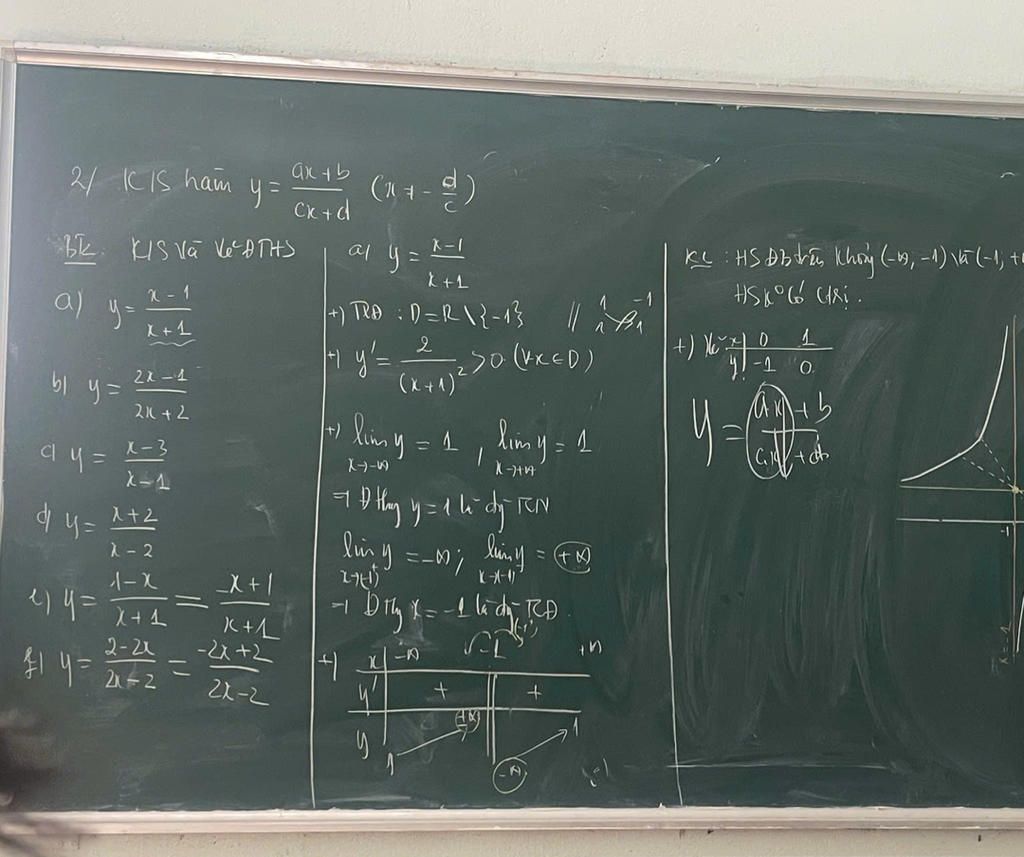 2/ K/S hàm y = \frac{ax+b}{cx+d} (x ≠ -\frac{d}{c})
Btk: K/S Và Vẽ ĐTHS
a) y = \frac{x-1}{x+1}
b) y = \frac{2x-1}{2x+2}
c) y = \frac{x-3}{x-1}
d) y = \frac{x+2}{x-2}
e) y = \frac{1-x}{x+1} = \frac{-x+1}{x+1}
f) y = \frac{2-2x}{2x-2} = \frac{-2x+2}{2x-2}
a) y = \frac{x-1}{x+1}
+) TXĐ : D = R \ {-1} // 1 -1 1 1
+) y' = \frac{2}{(x+1)^2} > 0 (∀x ∈ D)
+) \lim_{x→-∞} y = 1 , \lim_{x→+∞} y = 1
⇒ Đ thg y = 1 là đg TCN
\lim_{x→(-1)^+} y = -∞ ; \lim_{x→(-1)^-} y = +∞
⇒ Đ thg x = -1 là đg TCĐ.
+) x | -∞ -1 +∞
y' | + || +
y | 1 +∞ || -∞ 1
KL : HS ĐB trên khoảng (-∞, -1) và (-1, +
HS k° có cực trị.
+) Vẽ x | 0 1
y | -1 0
y = \frac{ax+b}{cx+d}
-1
x = -1